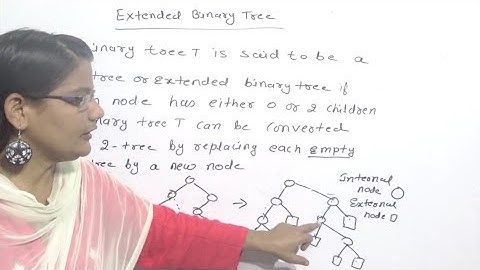 Extended Binary Tree
inary tree T is said to be a
tree or Extended binary tree if
node has either 0 or 2 children
nary tree T can be converted
2-tree by replacing each empty
tree by a new node
Internal
node
External
node